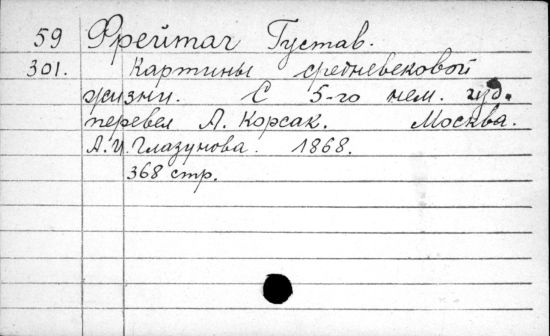 59 Фрейтаг Густав.
301. Картины средневековой
жизни. С 5-го нем. изд.
перевел А. Корсак. Москва.
А.И. Глазунова. 1868.
368 стр.